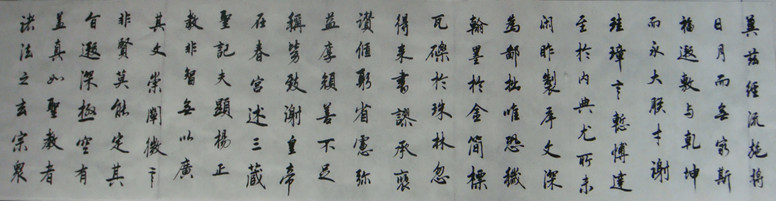 冀茲經流施將
日月而無窮斯
福遐敷與乾坤
而永大朕才謝
珪璋言慙博達
至於内典尤所未
閑昨製序文深
為鄙拙唯恐穢
翰墨於金簡標
瓦礫於珠林忽
得來書謬承褒
讚循躬省慮彌
益厚顏善不足
稱勞致謝皇帝
在春宮述三藏
聖記夫顯揚正
教非智無以廣
其文崇闡微言
非賢莫能定其
旨遐深極空有
蓋真如聖教者
諸法之玄宗眾